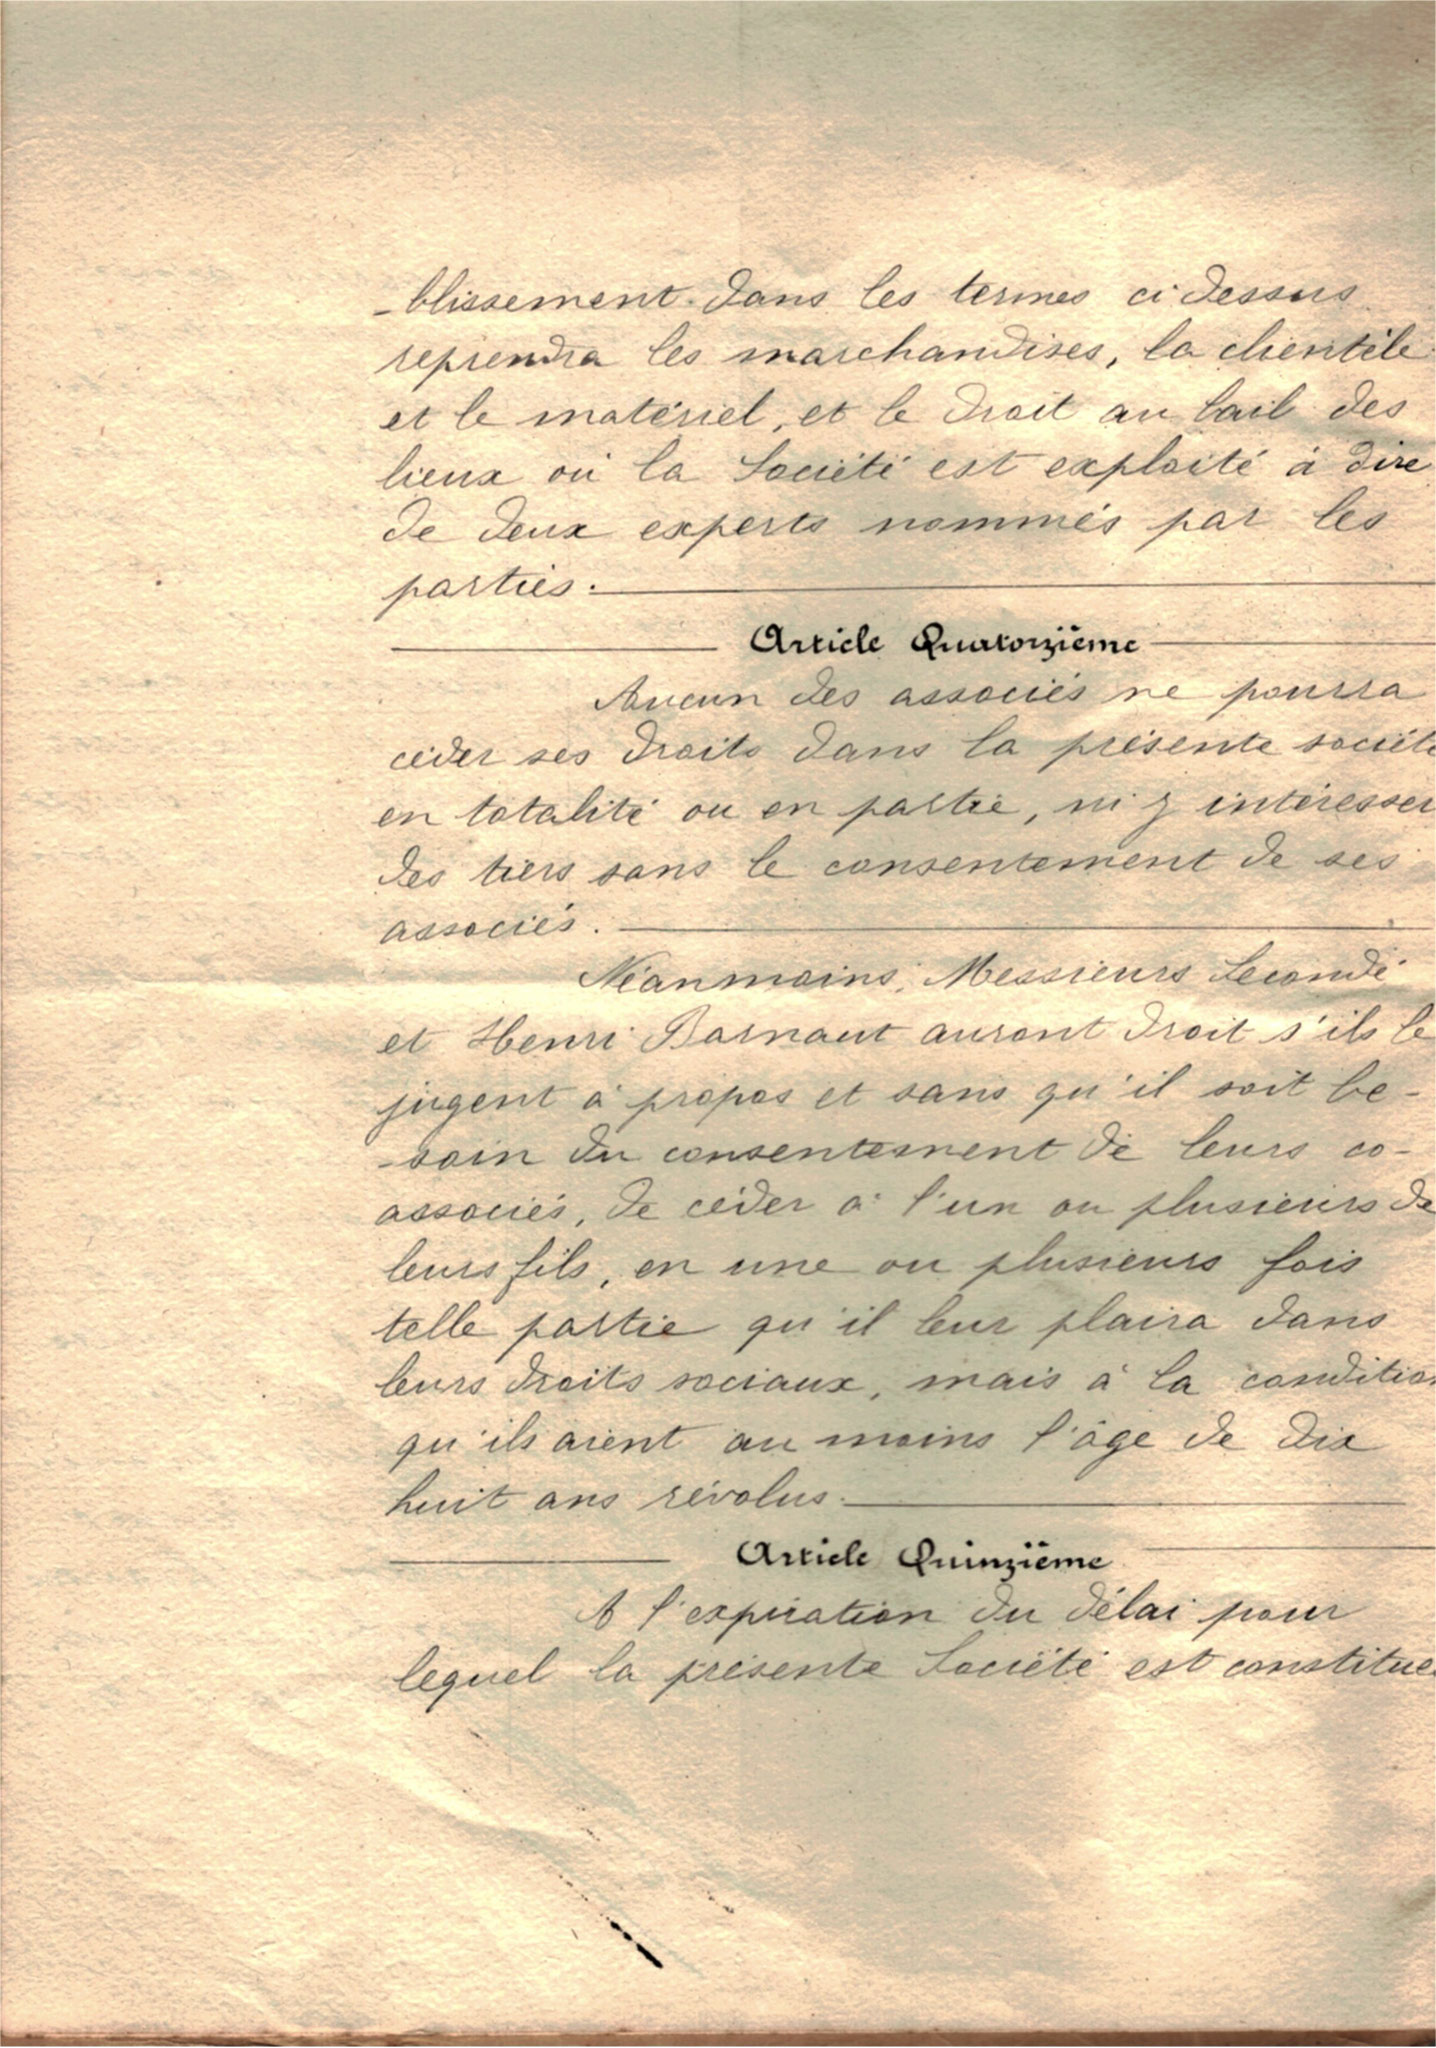 -blissement dans les termes ci dessus
reprendra les marchandises, la clientèle
et le matériel, et le droit au bail des
lieux où la Société est exploité à dire
de deux experts nommés par les
parties.
Article Quatorzième
Aucun des associés ne pourra
céder ses droits dans la présente société
en totalité ou en partie, ni y intéresser
des tiers sans le consentement de ses
associés.
Néanmoins, Messieurs Secondé
et Henri Barnaut auront droit s'ils le
jugent à propos et sans qu'il soit be-
-soin du consentement de leurs co-
associés, de céder à l'un ou plusieurs de
leurs fils, en une ou plusieurs fois
telle partie qu'il leur plaira dans
leurs droits sociaux, mais à la condition
qu'ils aient au moins l'âge de dix
huit ans révolus.
Article Quinzième
A l'expiration du délai pour
lequel la présente Société est constituée